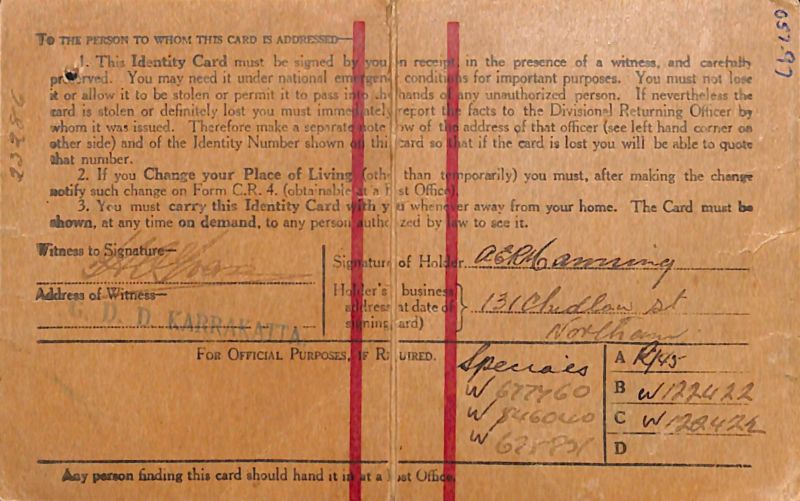 TO THE PERSON TO WHOM THIS CARD IS ADDRESSED—
1. This Identity Card must be signed by you on receipt, in the presence of a witness, and carefully
preserved. You may need it under national emergency conditions for important purposes. You must not lose
it or allow it to be stolen or permit it to pass into the hands of any unauthorized person. If nevertheless the
card is stolen or definitely lost you must immediately report the facts to the Divisional Returning Officer by
whom it was issued. Therefore make a separate note now of the address of that officer (see left hand corner on
other side) and of the Identity Number shown on this card so that if the card is lost you will be able to quote
that number.
2. If you Change your Place of Living (other than temporarily) you must, after making the change
notify such change on Form C.R. 4. (obtainable at a Post Office).
3. You must carry this Identity Card with you whenever away from your home. The Card must be
shown, at any time on demand, to any person authorized by law to see it.
Witness to Signature—
Signature of Holder
Manning
Address of Witness—
Holder's business
address at date of
signing card)
131 Chidlow St
Northam
G. D. D. KARRAKATTA.
FOR OFFICIAL PURPOSES, IF REQUIRED.
Specials
W 677460
W 846040
W
A R/45
B W122422
C W122422
D
Any person finding this card should hand it in at a Post Office.
23286